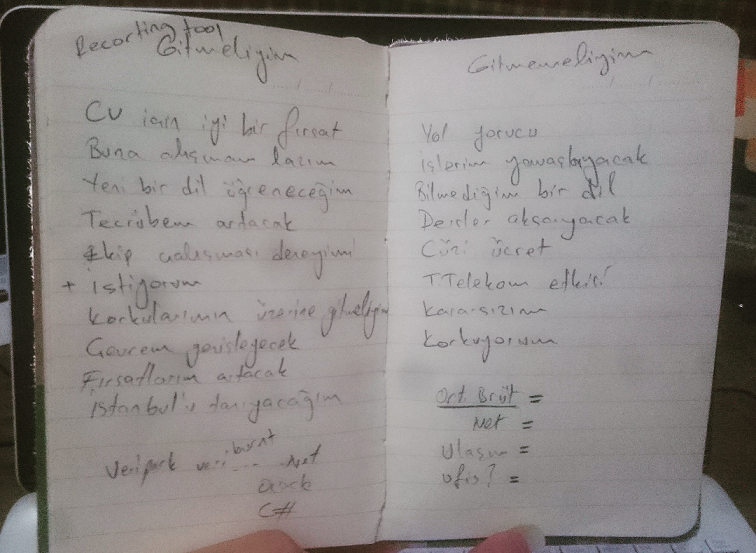 Recorting tool
Gitmeliyim
CV için iyi bir fırsat
Buna alışmam lazım
Yeni bir dil öğreneceğim
Tecrübem artacak
Ekip çalışması deneyimi
+ istiyorum
Korkularımın üzerine gitmeliyim
Çevrem genişleyecek
Fırsatlarım artacak
İstanbul'u tanıyacağım
Veripark
.Net
C#
Gitmemeliyim
Yol yorucu
işlerim yavaşlayacak
Bilmediğim bir dil
Dersler aksayacak
Cüzi ücret
T.Telekom etkisi
Kararsızım
Korkuyorum
Ort. Brüt =
Net =
Ulaşım =
Ofis? =